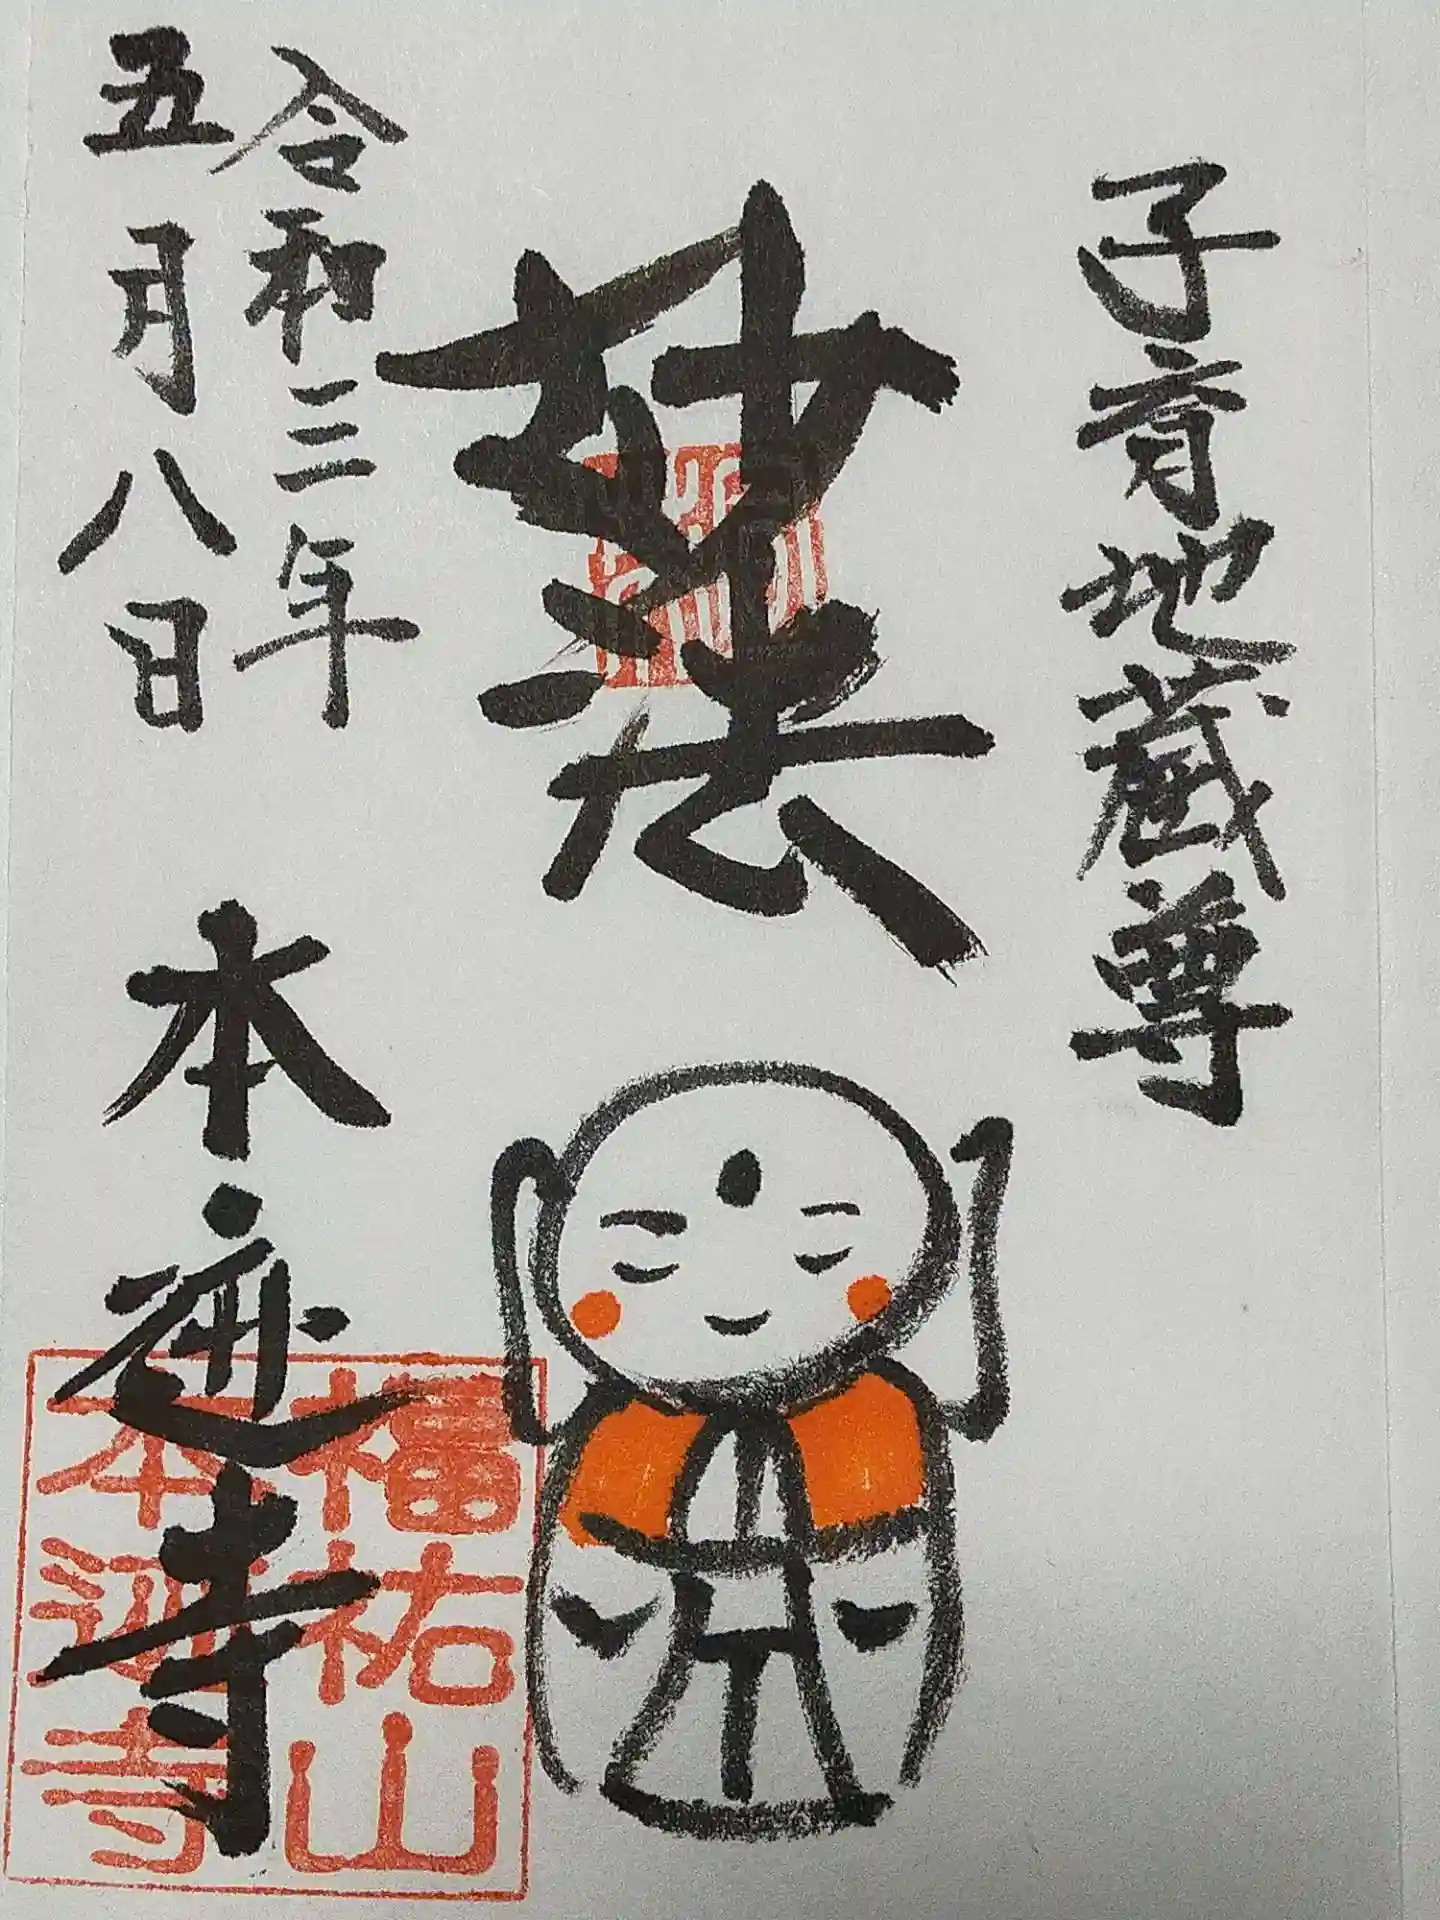 子育地蔵尊
妙法
令和三年
五月八日
本迹寺
福祐山
本迹寺